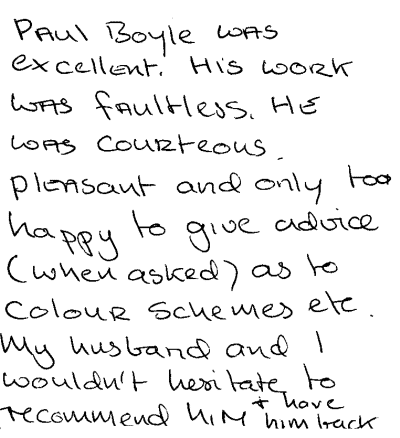 Paul Boyle was
excellent. His work
was faultless. He
was courteous.
pleasant and only too
happy to give advice
(when asked) as to
colour schemes etc.
My husband and I
wouldn't hesitate to
recommend him + have
him back